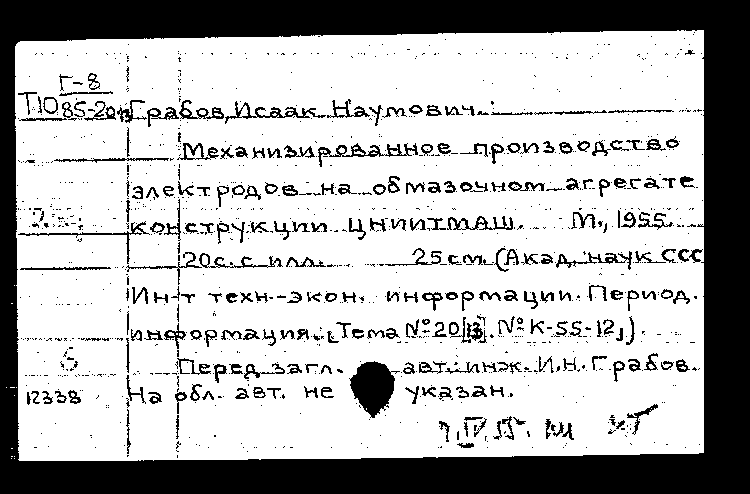 Г-8
Т10 85-20/13 Грабов, Исаак Наумович.
Механизированное производство
электродов на обмазочном агрегате
конструкции ЦНИИТМАШ. М., 1955.
20с. с илл. 25 см. (Акад. наук ССС
Ин-т техн.-экон. информации. Период.
информация. Тема №20[13]. №К-55-12).
6 Перед загл. авт.: инж. И.Н. Грабов.
12338 На обл. авт. не указан.
7.IV.55.